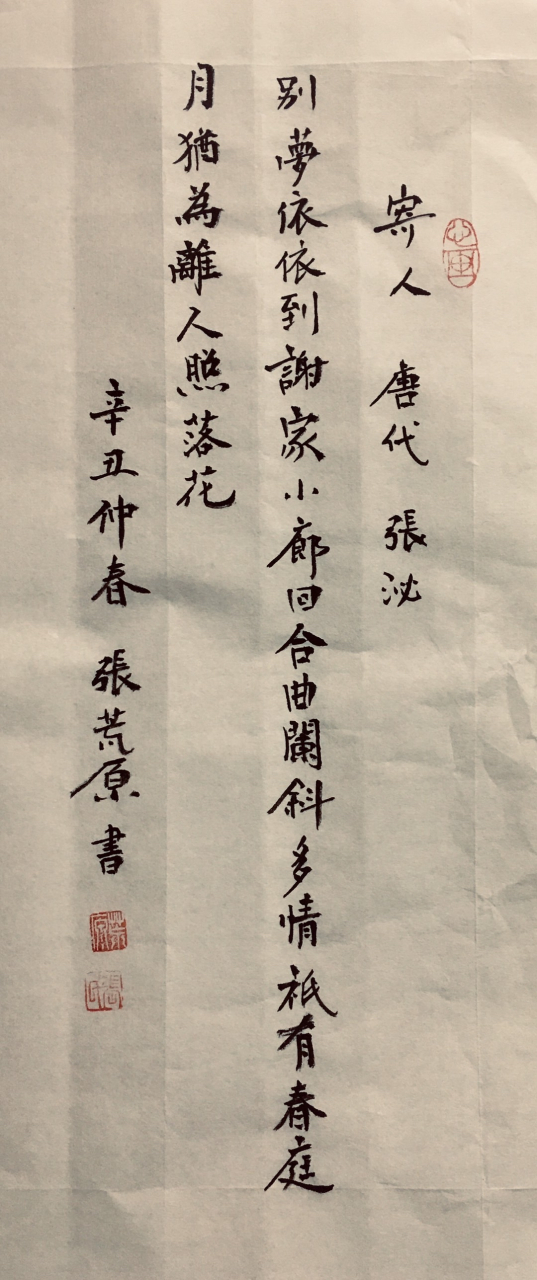 寄人 唐代 張泌
別夢依依到謝家小廊回合曲闌斜多情祇有春庭
月猶為離人照落花
辛丑仲春 張荒原書